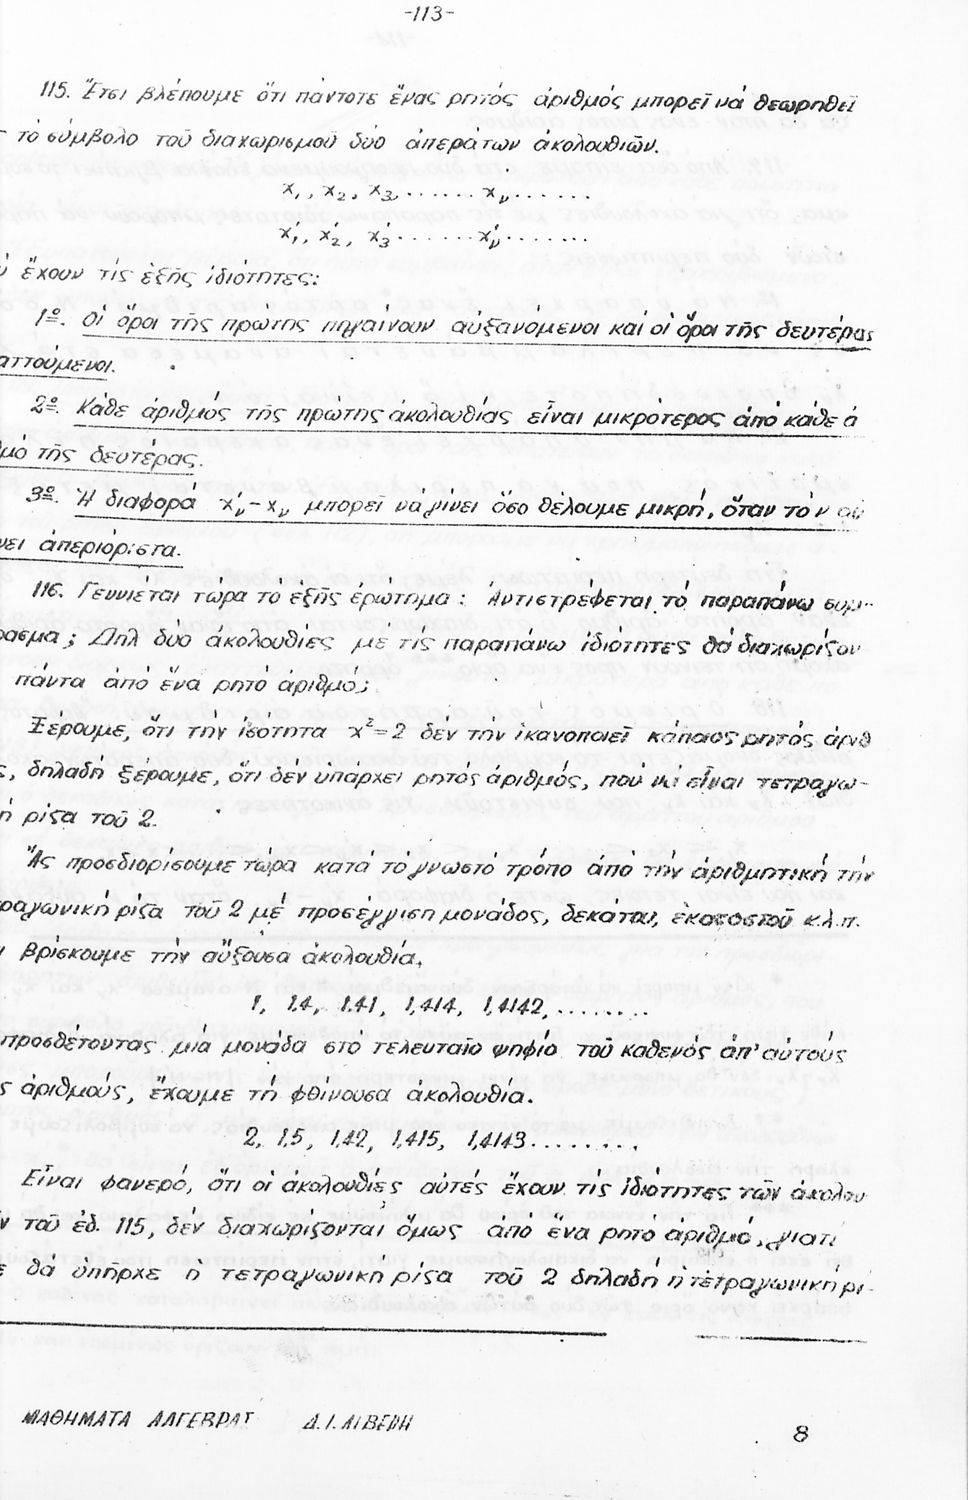 -113-
115. Ἔτσι βλέπουμε ὅτι πάντοτε ἕνας ρητός ἀριθμός μπορεῖ νά θεωρηθεῖ
τό σύμβολο τοῦ διαχωρισμοῦ δύο ἀπεράτων ἀκολουθιῶν.
x₁, x₂, x₃, ...... xᵥ......
x́₁, x́₂, x́₃ ...... x́ᵥ.......
ἔχουν τίς ἑξῆς ἰδιότητες:
1º. Οἱ ὅροι τῆς πρώτης πηγαίνουν αὐξανόμενοι καί οἱ ὅροι τῆς δευτέρας
αττούμενοι.
2º. Κάθε ἀριθμός τῆς πρώτης ἀκολουθίας εἶναι μικρότερος ἀπό κάθε ἀ
μό τῆς δευτέρας.
3º. Ἡ διαφορά x́ᵥ-xᵥ μπορεῖ νά γίνει ὅσο θέλουμε μικρή, ὅταν τό ν αὐ
νει ἀπεριόριστα.
116. Γεννιέται τώρα το ἑξῆς ἐρώτημα: Ἀντιστρέφεται τό παραπάνω συμ-
ρασμα; Δηλ δύο ἀκολουθίες με τις παραπάνω ἰδιότητες θά διαχωρίζον
πάντα ἀπό ἕνα ρητό ἀριθμό;
Ξέρουμε, ὅτι τήν ἰσότητα x²=2 δέν τήν ἱκανοποιεῖ κάποιος ρητός ἀριθ
ς, δηλαδή ξέρουμε, ὅτι δέν ὑπάρχει ρητός ἀριθμός, που νά εἶναι τετραγω-
ή ρίζα τοῦ 2.
Ἄς προσδιορίσουμε τώρα κατά τό γνωστό τρόπο ἀπό τήν ἀριθμητική τήν
ραγωνική ρίζα τοῦ 2 μέ προσέγγιση μονάδος, δεκάτου, εκατοστοῦ κ.λ.π.
ι βρίσκουμε τήν αὔξουσα ἀκολουθία.
1, 1,4, 1,41, 1,414, 1,4142, .........
προσθέτοντας μιά μονάδα στό τελευταῖο ψηφίο τοῦ καθενός ἀπ' αὐτούς
ς ἀριθμούς, ἔχουμε τή φθίνουσα ἀκολουθία.
2, 1,5, 1,42, 1,415, 1,4143..........
Εἶναι φανερό, ὅτι οἱ ακολουθίες αὐτές ἔχουν τίς ἰδιότητες τῶν ἀκολου
ν τοῦ ἐδ. 115, δέν διαχωρίζονται ὅμως ἀπό ἕνα ρητό ἀριθμό, γιατί
ε θά ὑπῆρχε ἡ τετραγωνική ρίζα τοῦ 2 δηλαδή ἡ τετραγωνική ρί-
ΜΑΘΗΜΑΤΑ ΑΛΓΕΒΡΑΣ Δ.Ι.ΛΙΒΕΡΗ
8